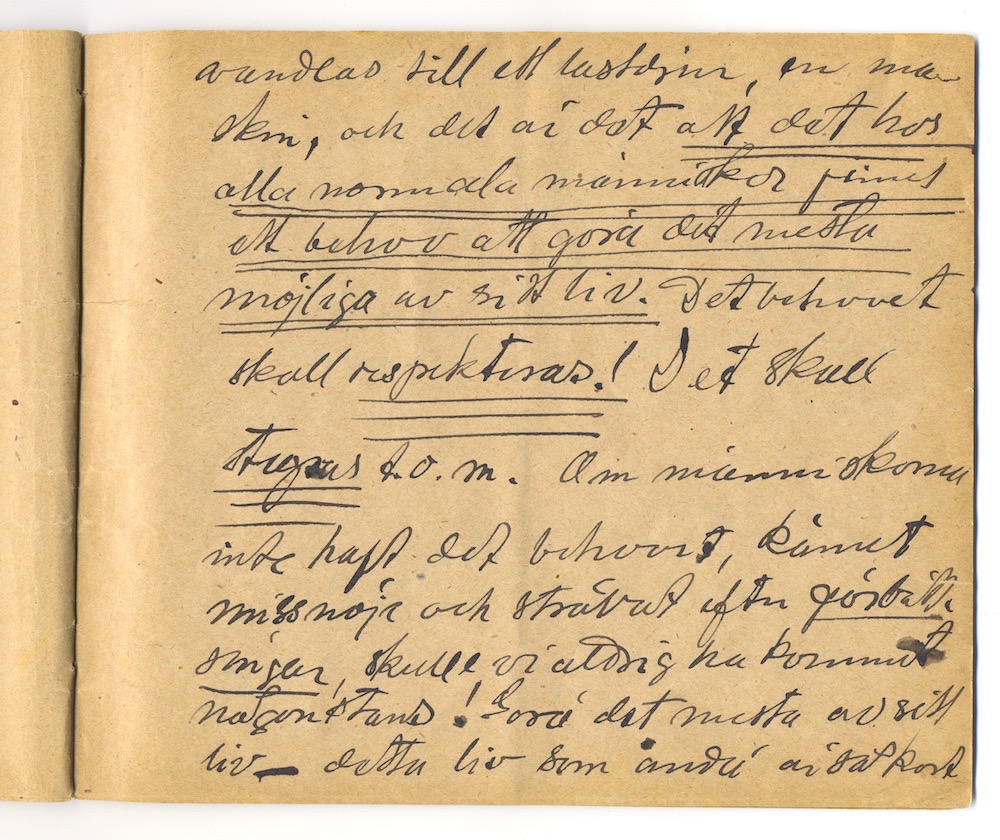 vandlas till ett lastdjur, en ma-
skin, och det är det att det hos
alla normala människor finnes
ett behov att göra det mesta
möjliga av sitt liv. Det behovet
skall respekteras! Det skall
t.o.m. Om människorna
inte haft det behovet, känt
missnöje och strävat efter förbätt-
ringar, skulle vi aldrig ha kommit
någonstans! Göra det mesta av sitt
liv – detta liv som ändå är så kort